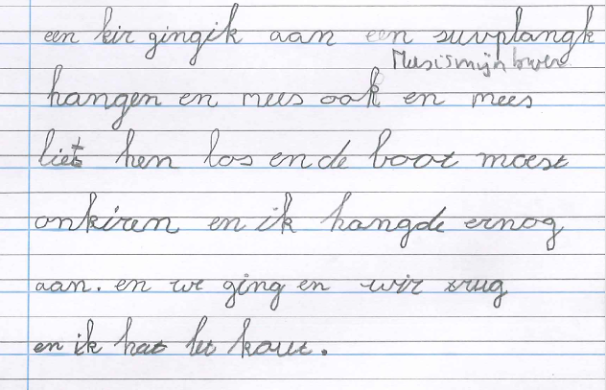 een kir gingik aan een survplangk
Mees is mijn broer
hangen en mees ook en mees
liet hen los en de boot moest
onkiren en ik hangde ernog
aan. en we ging en wir trug
en ik hat het kout.